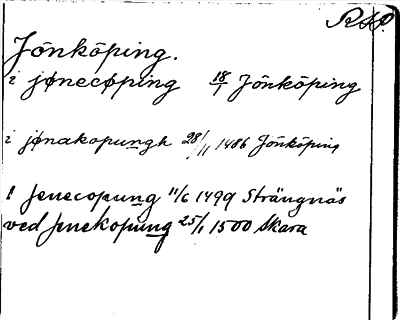 RAP.
Jönköping.
i jønecøping 18/1 Jönköping
i jønakopungh 28/11 1486 Jönköping
I Jenecopung 11/6 1499 Strängnäs
ved Jenekopung 25/1 1500 Skara